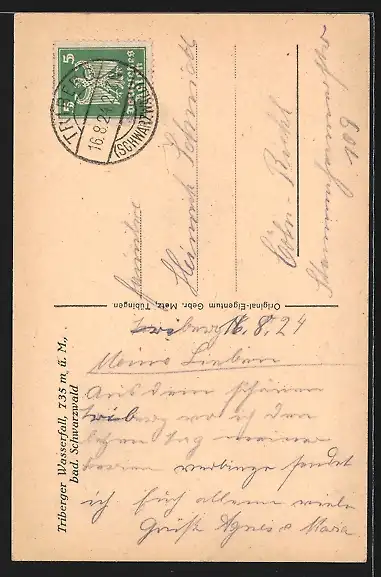 5 5
Deutsches Reich
TRIBERG
16.8.24
(SCHWARZWALD)
Familie
Heinrich Schmidt
Cöln-Bickd
Stammheimerstr
109
Original-Eigentum Gebr. Metz, Tübingen
Triberger Wasserfall, 735 m ü. M.,
bad. Schwarzwald
Triberg 16.8.24
Meine Lieben
Aus dem schönen
triberg wo ich den
letzten tag meiner
ferien verbringe sendet
ich Euch allem viele
Grüß Agnes & Maria